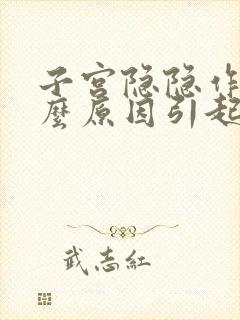 子宫隐隐作
麼原因引起
武志紅